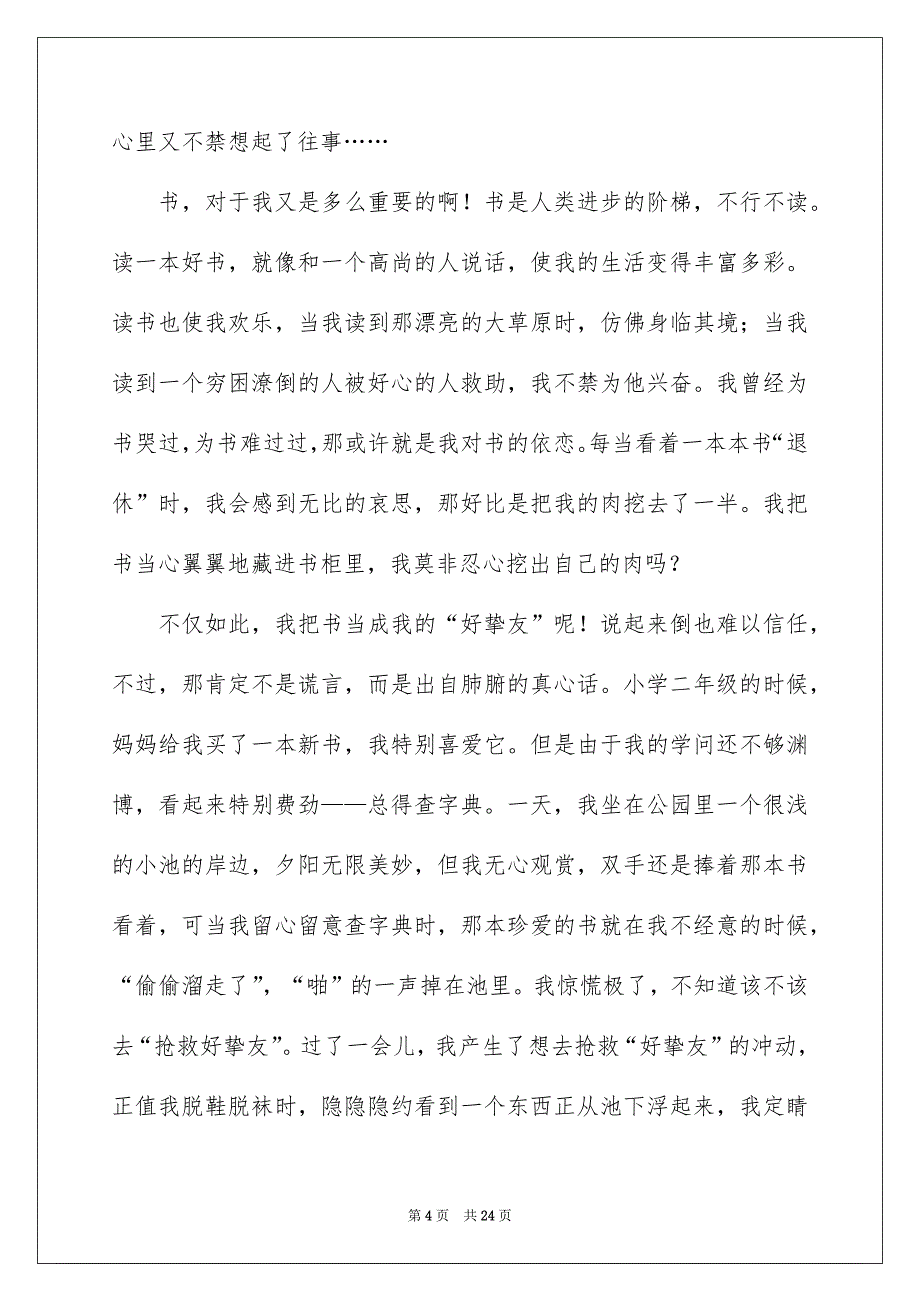 心里又不禁想起了往事……
书，对于我又是多么重要的啊！书是人类进步的阶梯，不行不读。
读一本好书，就像和一个高尚的人说话，使我的生活变得丰富多彩。
读书也使我欢乐，当我读到那漂亮的大草原时，仿佛身临其境；当我
读到一个穷困潦倒的人被好心的人救助，我不禁为他兴奋。我曾经为
书哭过，为书难过过，那或许就是我对书的依恋。每当看着一本本书“退
休”时，我会感到无比的哀思，那好比是把我的肉挖去了一半。我把
书当心翼翼地藏进书柜里，我莫非忍心挖出自己的肉吗？
不仅如此，我把书当成我的“好挚友”呢！说起来倒也难以信任，
不过，那肯定不是谎言，而是出自肺腑的真心话。小学二年级的时候，
妈妈给我买了一本新书，我特别喜爱它。但是由于我的学问还不够渊
博，看起来特别费劲——总得查字典。一天，我坐在公园里一个很浅
的小池的岸边，夕阳无限美妙，但我无心观赏，双手还是捧着那本书
看着，可当我留心留意查字典时，那本珍爱的书就在我不经意的时候，
“偷偷溜走了”，“啪”的一声掉在池里。我惊慌极了，不知道该不该
去“抢救好挚友”。过了一会儿，我产生了想去抢救“好挚友”的冲动，
正值我脱鞋脱袜时，隐隐隐约看到一个东西正从池下浮起来，我定睛
第 4 页 共 24 页